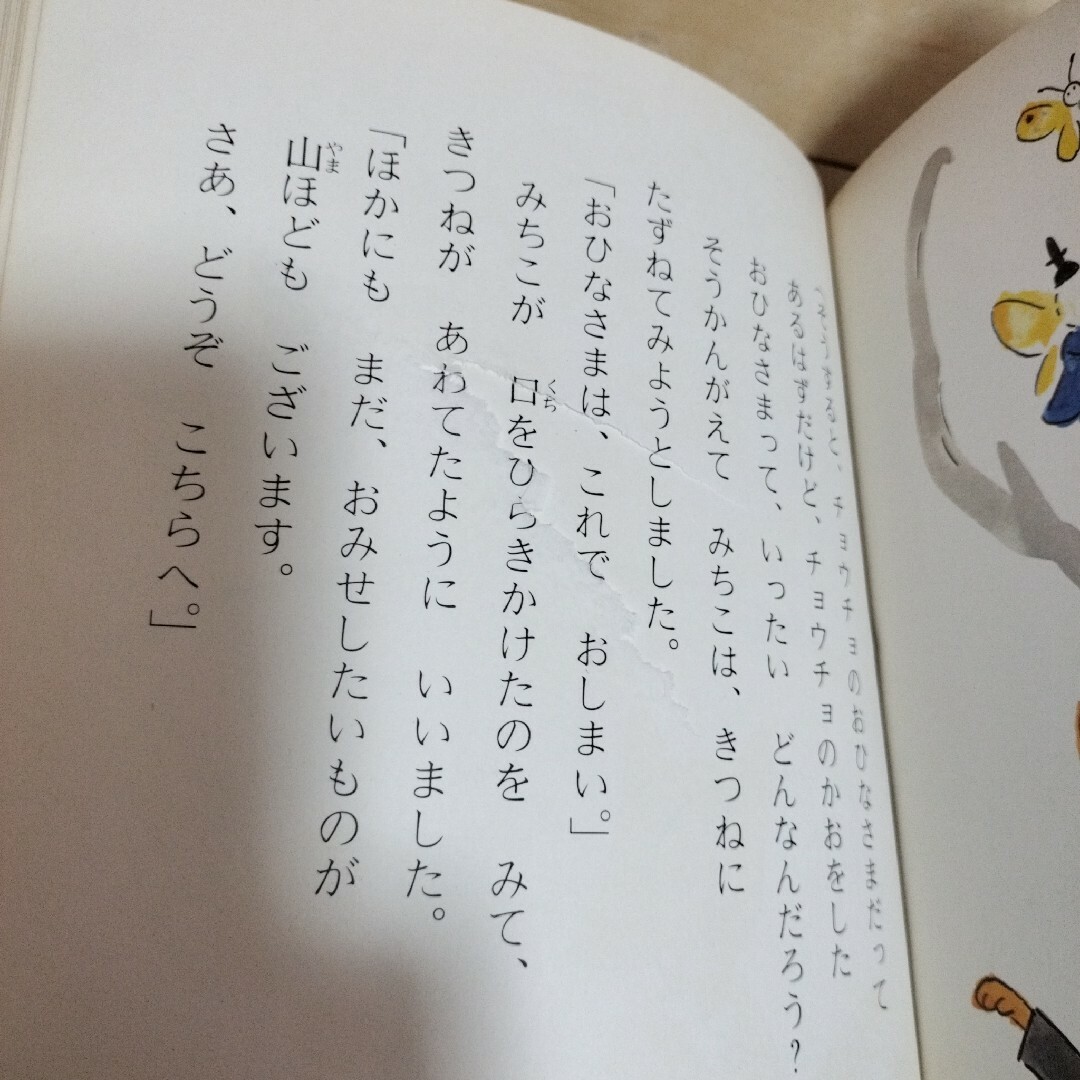 （そうなると、チョウチョのおひなさまだって
あるはずだけど、チョウチョのかおをした
おひなさまって、いったい どんなんだろう？
そうかんがえて みちこは、きつねに
たずねてみようとしました。
「おひなさまは、これで おしまい。」
みちこが 口をひらきかけたのを みて、
きつねが あわてたように いいました。
「ほかにも まだ、おみせしたいものが
山ほども ございます。
さあ、どうぞ こちらへ。」